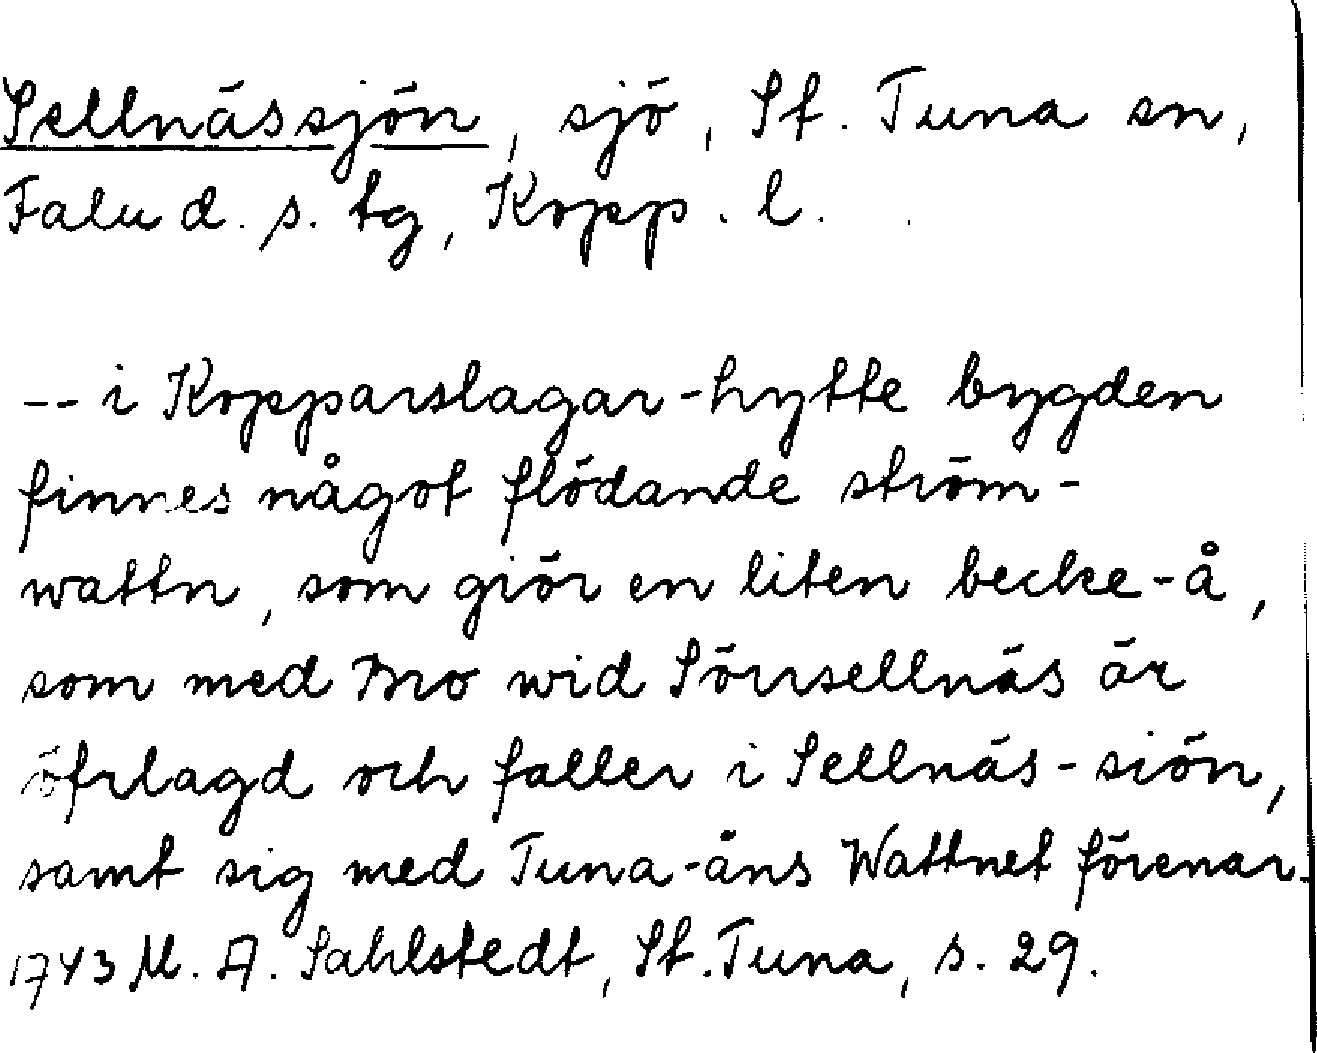 Sellnässjön, sjö, St. Tuna sn,
Falu d. s. tg, Kopp. l.
-- i Kopparslagar-hytte bygden
finnes något flödande ström-
wattn, som giör en liten becke-å,
som med Bro wid Sörsellnäs är
öfrlagd och faller i Sellnäs-siön,
samt sig med Tuna-åns Wattnet förenar.
1743 M. A. Sahlstedt, St. Tuna, s. 29.